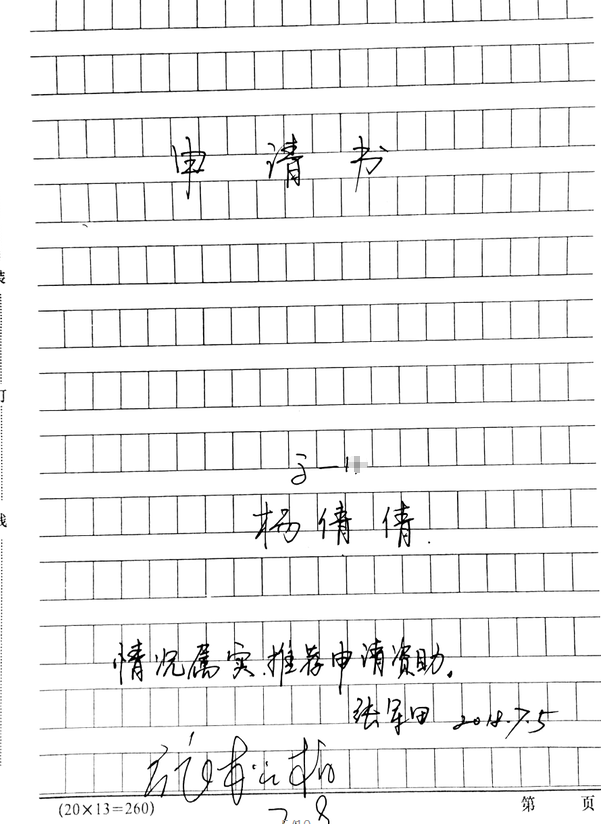 申请书
杨倩倩
情况属实,推荐申请资助。
张军田 2018.7.5
7.8
(20×13=260) 第 页
装
订
线